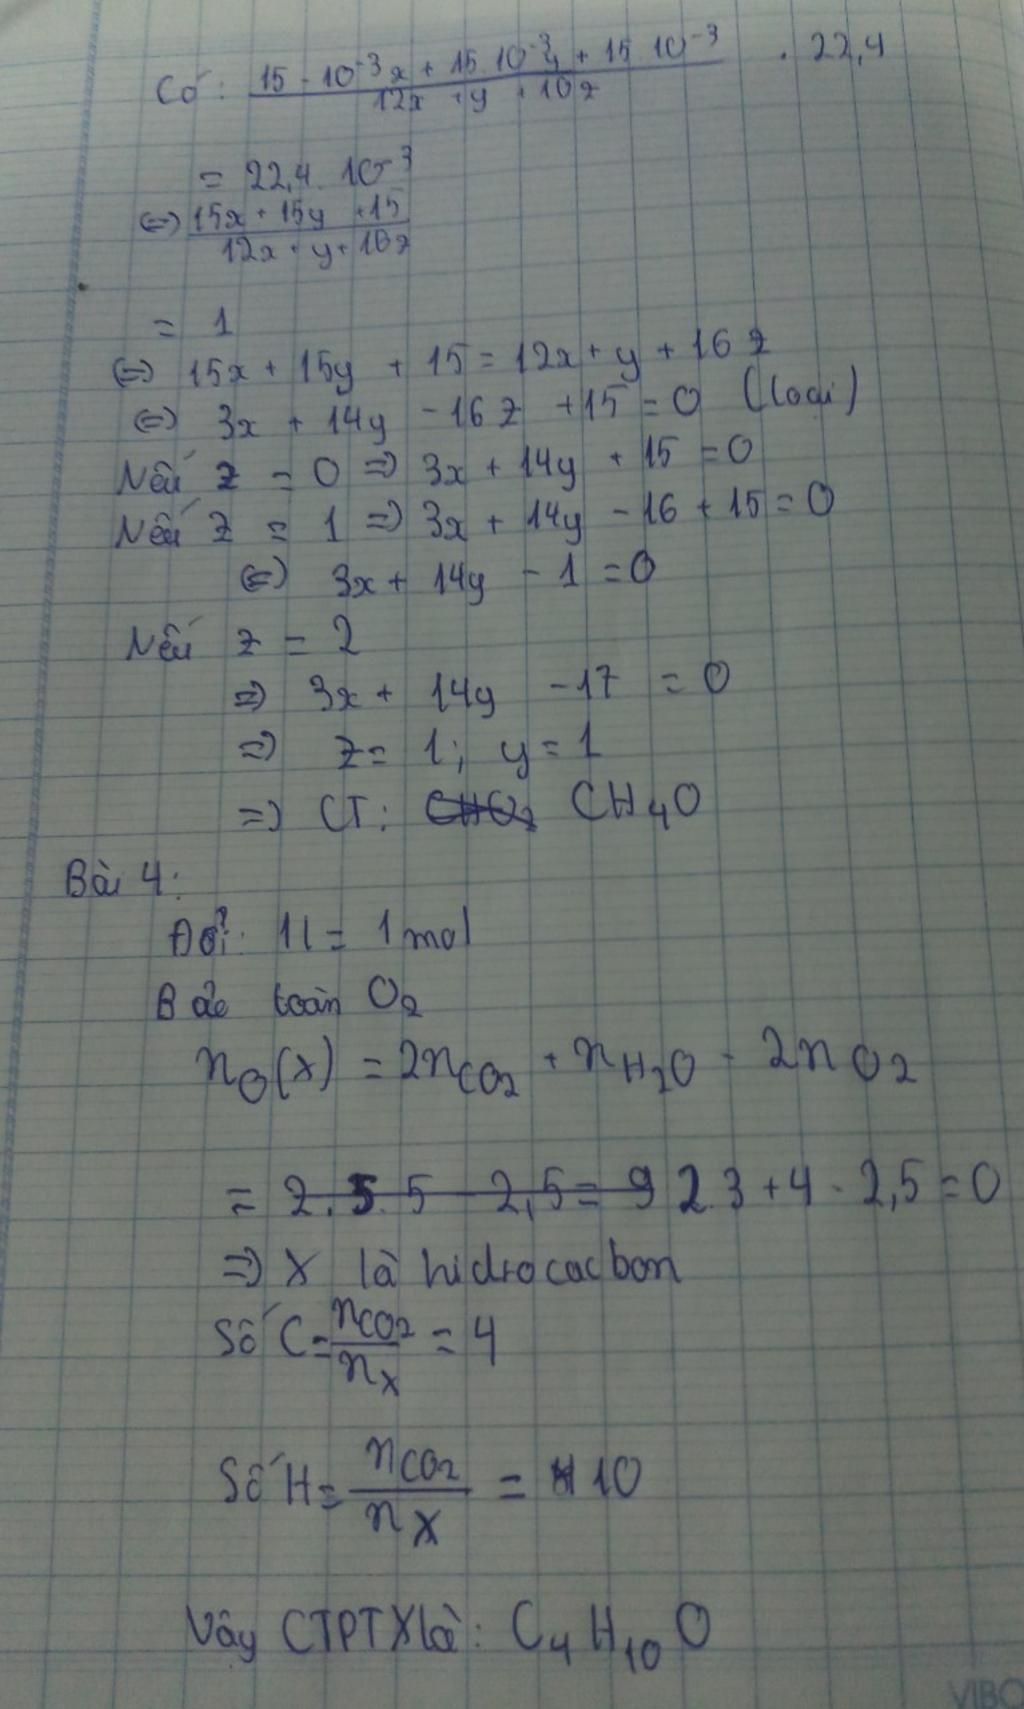 Có: (15 . 10⁻³x + 15 10⁻³y + 15 10⁻³)/(12x + y + 16z) . 22,4
= 22,4. 10⁻³
⇔ (15x + 15y + 15)/(12x + y + 16z)
= 1
⇔ 15x + 15y + 15 = 12x + y + 16z
⇔ 3x + 14y - 16z + 15 = 0 (loại)
Nếu z = 0 ⇒ 3x + 14y + 15 = 0
Nếu z = 1 ⇒ 3x + 14y - 16 + 15 = 0
⇔ 3x + 14y - 1 = 0
Nếu z = 2
⇒ 3x + 14y - 17 = 0
⇒ z = 1; y = 1
⇒ CT: CHO₂ CH₄O
Bài 4:
Đổi: 1l = 1 mol
Bảo toàn O₂
nO(X) = 2nCO₂ + nH₂O - 2nO₂
= 2. 5. 5 - 2,5 = 9 2.3 + 4 - 2,5 = 0
⇒ X là hidrocacbon
Số C = nCO₂/nX = 4
Số H = nCO₂/nX = 10
Vậy CTPT X là: C₄H₁₀O
VIBO